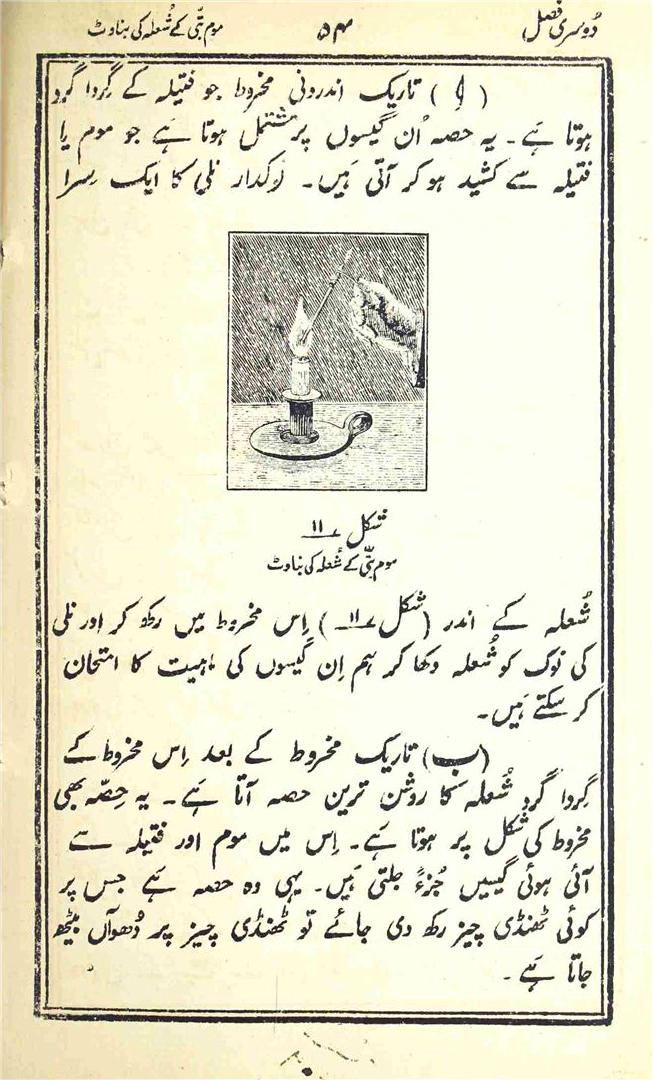 دُوسری فصل ۵۴ موم بتّی کے شُعلہ کی بناوٹ
( ا ) تاریک اندرونی مخروط جو فتیلہ کے گردا گرد
ہوتا ہَے ۔ یہ حصہ اُن گیسوں پر مشتمل ہوتا ہے جو موم یا
فتیلہ سے کشید ہو کر آتی ہَیں ۔ نوکدار نلی کا ایک سِرا
شکل ۱۱
موم بتّی کے شُعلہ کی بناوٹ
شُعلہ کے اندر ( شکل ۱۱ ) اِس مخروط میں رکھ کر اور نلی
کی نوک کو شُعلہ دکھا کر ہم اِن گیسوں کی ماہیت کا امتحان
کر سکتے ہَیں ۔
(ب) تاریک مخروط کے بعد اِس مخروط کے
گِردا گرد شُعلہ کا روشن ترین حصہ آتا ہَے ۔ یہ حِصّہ بھی
مخروط کی شکل پر ہوتا ہَے ۔ اِس میں موم اور فتیلہ سے
آئی ہوئی گیسیں جُزءً جلتی ہَیں ۔ یہی وہ حصہ ہَے جس پر
کوئی ٹھنڈی چیز رکھ دی جائے تو ٹھنڈی چیز پر دُھوآں بیٹھ
جاتا ہَے ۔